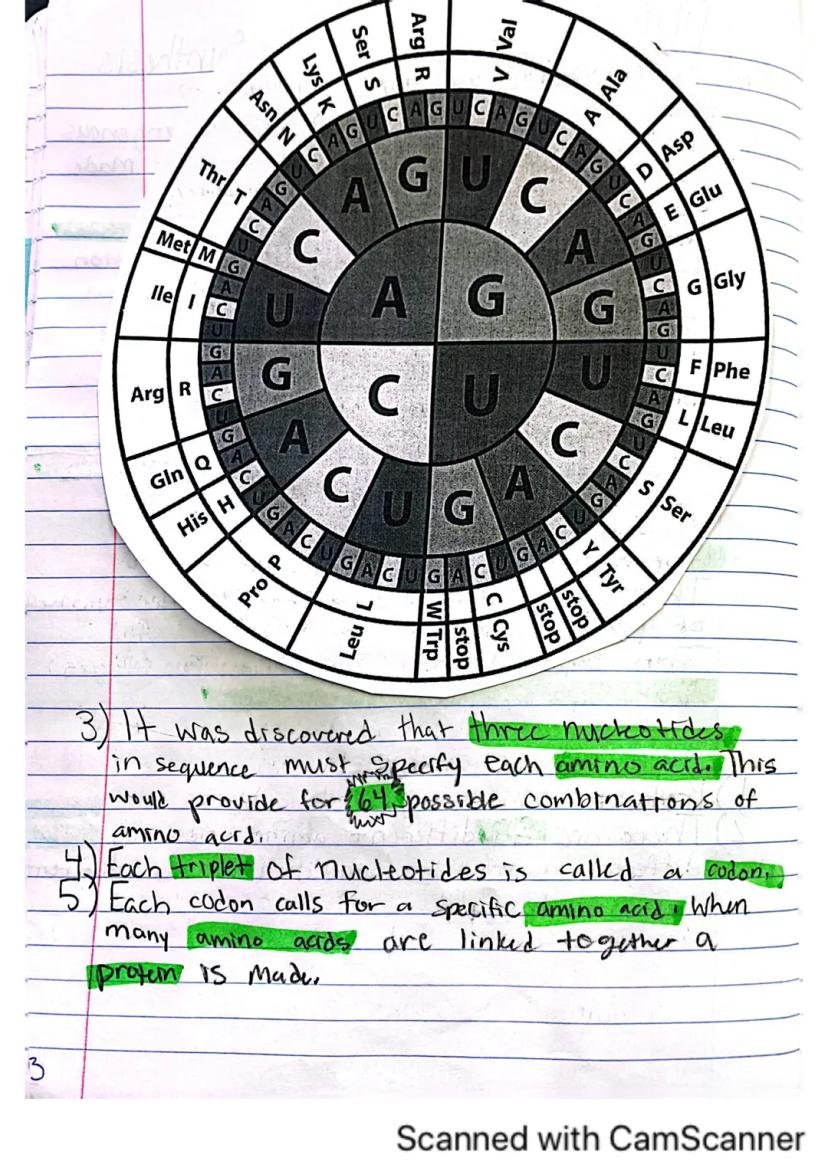 Ser Arg Val
Lys S R V Ala
Asn K A Asp
Thr N D Glu
T E
Met M G Gly
Ile I F Phe
Arg R L Leu
Gln Q S Ser
His H Y Tyr
Pro P stop
Leu L W C stop
Trp stop Cys
A G U C
A G
C U
3) It was discovered that three nucleotides
in sequence must specify each amino acid. This
would provide for 64 possible combinations of
amino acid.
4) Each triplet of nucleotides is called a codon.
5) Each codon calls for a specific amino acid. When
many amino acids are linked together a
protein is made.
3
Scanned with CamScanner